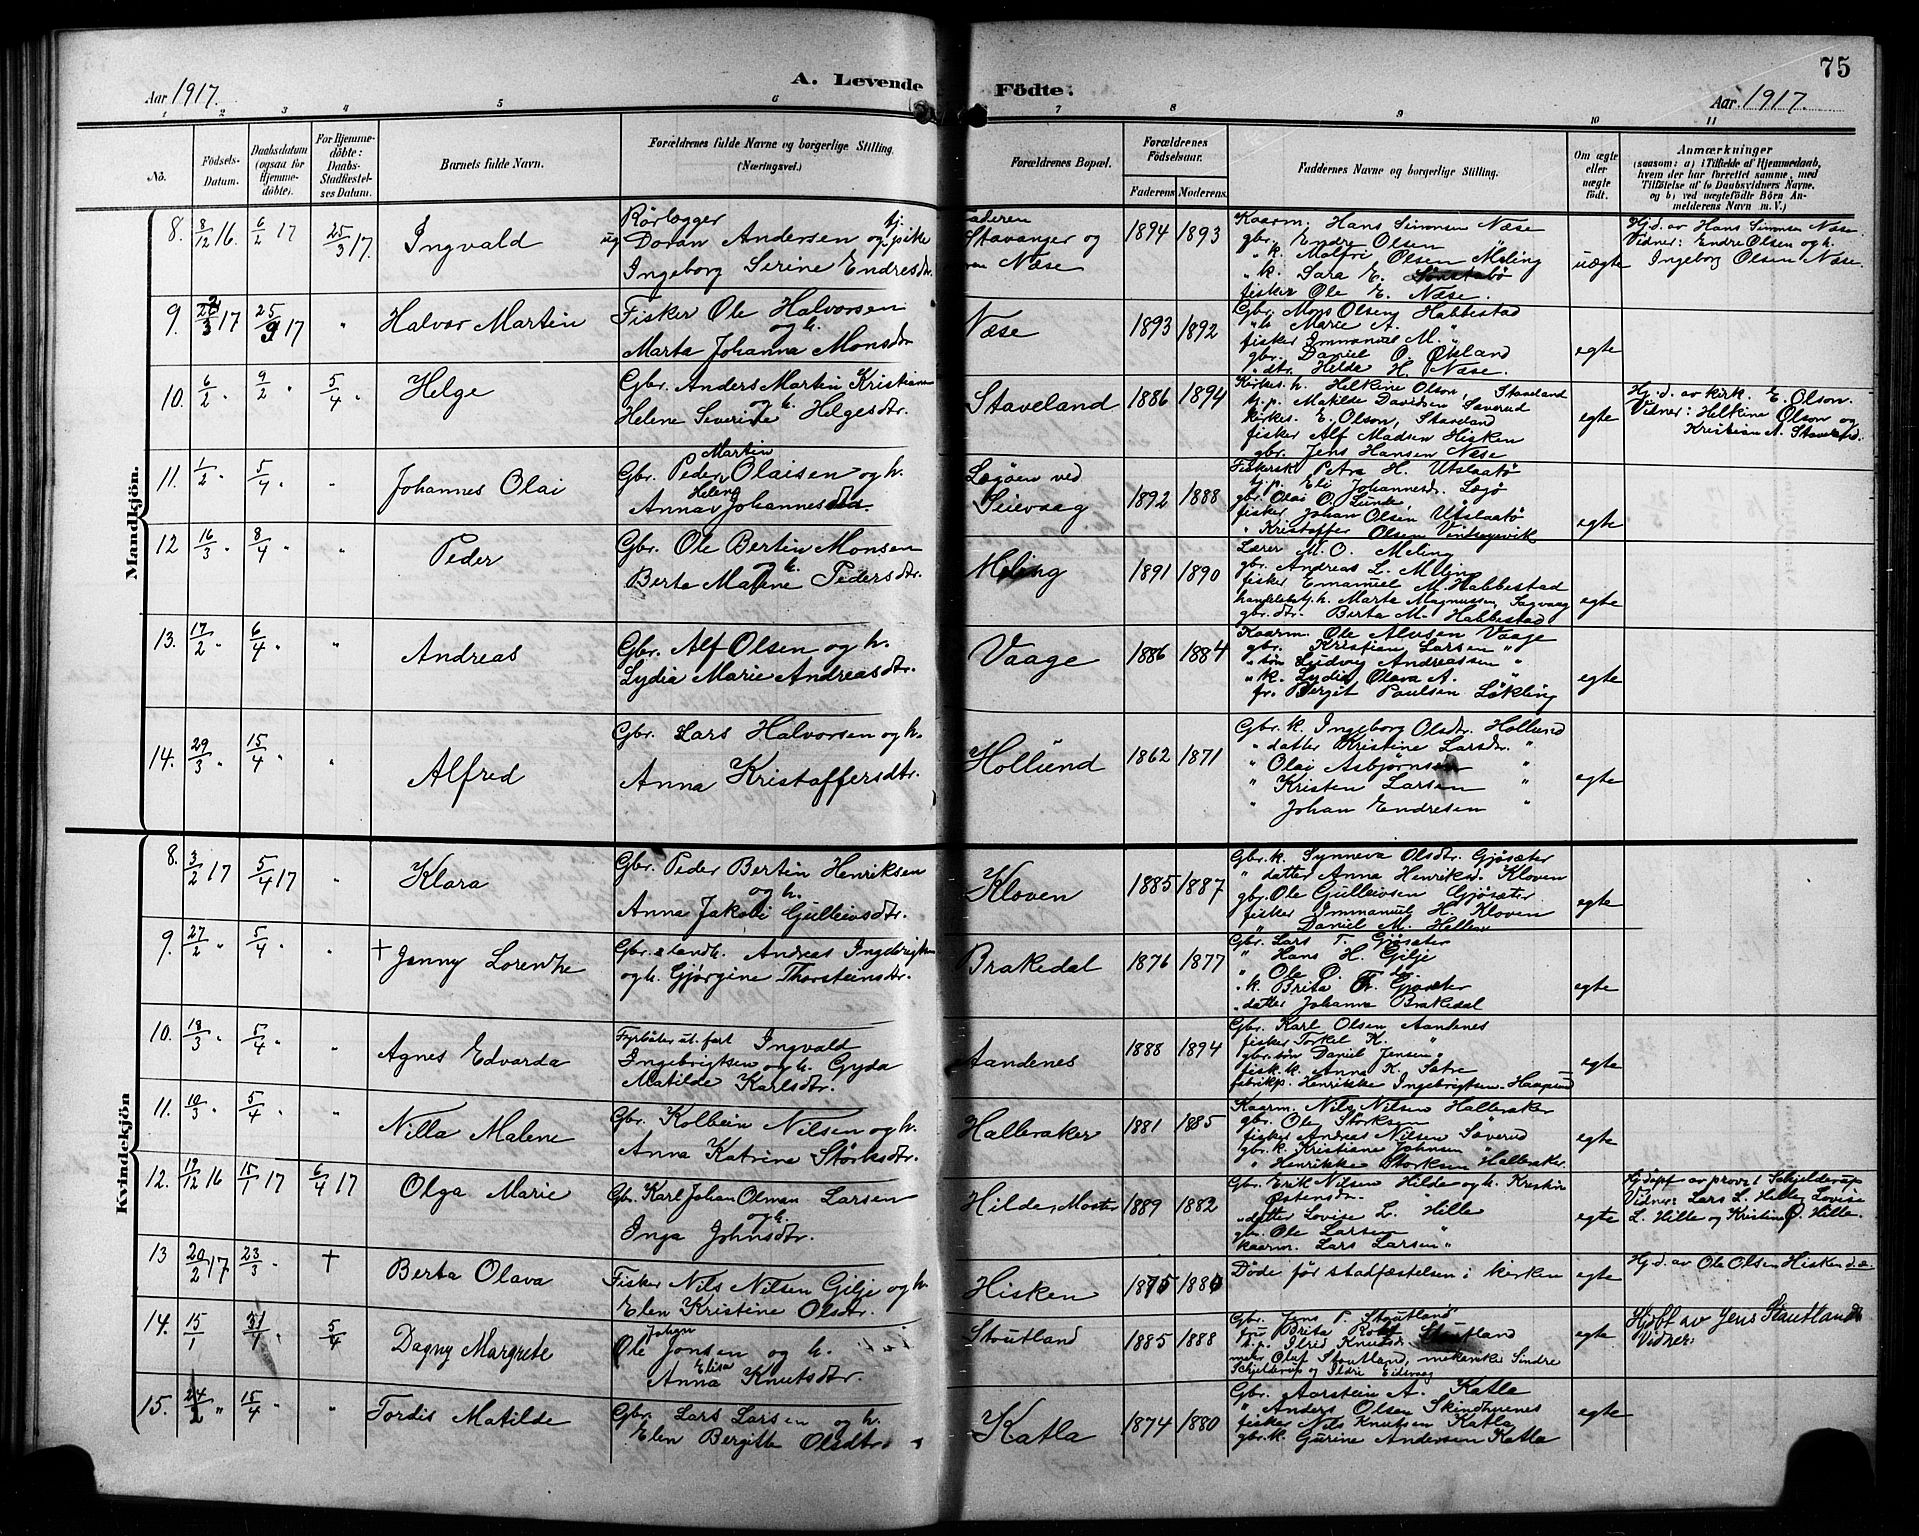 75
Aar 1917.
A. Levende Födte.
Aar 1917.
1 2 3 4 5 6 7 8 9 10 11
No.
Födsels-Datum.
Daabsdatum (ogsaa for Hjemmedöbte).
For Hjemmedöbte: Daabs-Stadfæstelses Datum.
Barnets fulde Navn.
Forældrenes fulde Navne og borgerlige Stilling. (Næringsvei.)
Forældrenes Bopæl.
Forældrenes Födselsaar.
Faderens Moderens
Faddernes Navne og borgerlige Stilling.
Om ægte eller uægte födt.
Anmærkninger
(saasom: a) i Tilfælde af Hjemmedaab, hvem der har forrettet samme, med Tilföielse af to Daabsvidners Navne, og b) ved uægtefödte Börn Anmelderens Navn m. V.)
Mandkjön.
8. 8/12 16. 6/2 17 25/3 17. Ingvald
Rörlægger
ug Doran Andersen og tj. pike
Ingeborg Serine Endresdtr.
Faderen Stavanger og Næse
1894 1893
Kaarm. Hans Simonsen Næse
gbr. Endre Olsen "
" k. Malfri Olsen Meling
" k. Sara E. Sönstabö
fisker Ole E. Næse.
uægte
Hj.d. av Hans Simonsen Næse.
Vidner: Endre Olsen og h.
Ingeborg Olsen Næse.
9. 17 25/3 17 " Halvor Martin
Fisker Ole Halvorsen
og h.
Marta Johanna Monsdtr
Næse
1893 1892
Gbr. Mons Olseng Habbestad
" k. Marie A. "
fisker Immanuel M. "
gbr. Daniel O. Økland
" dtr. Helde H. Næse.
egte
10. 6/2 " 9/2 " 5/4 " Helge
Gbr. Anders Martin Kristians
og h.
Helene Severine Helgesdtr.
Staveland
1886 1894
Kirkes. h. Helkine Olson, Staveland
tj.p. Matilde Davidsen Sæverud
kirkes. E. Olson, Staveland
fisker Alf Madsen Hisken
gbr. Jens Hansen Næse
egte
Hj.d. av kirk. E. Olson.
Vidner: Helkine Olson og
Kristian A. Staveland.
11. 1/2 " 5/4 " " Johannes Olai
Martin
Gbr. Peder Olaisen og h.
Helene
Anna Johannesdtr.
Lægöen ved
Seievaag
1892 1888
Fiskersk. Petra H. Utslaatö
tj.p. Eli Johannesdr. Lægö
gbr. Olai O. Lunde
fisker Johan Olsen Utslaatö
" Kristoffer Olsen
egte
12 16/3 " 8/4 " " Peder
Gbr. Ole Bertin Monsen
og h.
Berte Malene Pedersdtr.
Meling
1891 1890
Lærer M. O. Meling
gbr. Andreas L. Meling
fisker Emanuel M. Habbestad
handelsbstj. h. Marta Magnussen, Sagvaag
gbr. dtr. Berta M. Habbestad
egte
13. 17/2 " 6/4 " " Andreas
Gbr. Alf Olsen og h.
Lydia Marie Andreasdtr.
Vaage
1886 1884
Kaarm. Ole Alvsen Vaage
gbr. Kristian Larsen "
" sön Ludvig Andreassen "
" k. Lydia Olava A. "
fr. Bergit Paulsen Lökling
egte
14. 29/3 " 15/4 " " Alfred
Gbr. Lars Halvorsen og h.
Anna Kristoffersdtr.
Hollund
1862 1871
Gbr. k. Ingeborg Olsdtr. Hollund
" datter Kristine Larsdtr. "
" Olai Asbjørnsen "
" Kristen Larsen "
" Johan Endresen "
egte
Kvindekjön
8. 3/2 17 5/4 17 " Klara
Gbr. Peder Bertin Henriksen
og h.
Anna Jakobi Gulleivsdtr.
Kloven
1885 1887
Gbr. k. Synneva Olsdtr. Gjösæter
" datter Anna Henriksd. Kloven
gbr. Ole Gulleivsen Gjösæter
fisker Immanuel H. Kloven
" Daniel M. Hellen
egte
9. 27/2 " 5/4 " " + Jenny Lorentze
Gbr. & landh. Andreas Ingebrigtsen
og h. Gjørgine Thorsteinsdtr.
Brakedal
1876 1877
Gbr. Lars T. Gjösæter
" Hans H. Gilje
" Ole O. do.
" k. Brita T. Gjösæter
" datter Johanna Brakedal
egte
10. 18/3 " 5/4 " " Agnes Edvarda
Fyrböter ut. fart Ingvald
Ingebrigtsen og h. Gyda
Matilde Karlsdtr.
Aandenes
1888 1894
Gbr. Karl Olsen Aandenes
fisker Torkel K. "
gbr. sön Daniel Jensen "
fisk. k. Anna K. Sætre
fabrikp. Henrikke Ingebrigtsen Haugesund
egte
11. 10/3 " 5/4 " " Nilla Malene
Gbr. Kolbein Nilsen og h.
Anna Katrine Störksdtr.
Halleraker
1881 1885
Kaarm. Nils Nilsen Halleraker
gbr. Ole Störksen "
fisker Andreas Nilsen Sæverud
gbr. k. Kristiane Johnsen "
" Henrikke Störksen Halleraker.
egte
12. 19/12 16 15/1 17 6/4 17 Olga Marie
Gbr. Karl Johan Olman Larsen
og h.
Inga Johnsdtr.
Hilde, Moster
1889 1882
Gbr. Erik Nilsen Hilde og h. Kristine
Østensdr.
" datter Lovise L. Hille
gbr. Ole Larsen "
kaarm. Lars Larsen "
egte
Hj.döpt av provst Schjelderup
Vidner: Lars L. Hille, Lovise
L. Hille og Kristine Ø. Hille.
13 20/2 17. 23/3 " + Berta Olava
Fisker Nils Nilsen Gilje og h.
Elen Kristine Olsdtr.
Hisken
1875 1880
Döde før stadfæstelsen i kirken
egte
Hj.d. av Ole Olsen Hisken d.æ.
14. 15/1 " 5/4 Dagny Margrete
Johan
Ole Jonsen og h.
Elisa
Anna Knutsdtr.
Stoutland
1885 1888
Gbr. Jens P. Stoutland
fru Brita Stoutland
t.p. Ilrei Knutsdr.
Olaf Stoutland, mekaniker Sindre
Schjelderup og Ildri Eidevaag
egte
Hj.döbt av Jens Stautland
Vidner:
15. 24/2 " 15/4 " " Tordis Matilde
Gbr. Lars Larsen og h.
Elen Bergitte Olsdtr.
Katla
1874 1880
Gbr. Aarstein A. Katla
" Anders Olsen Skindtvenes
fisker Nils Knutsen Katla
gbr. k. Gurine Andersen Katla
egte